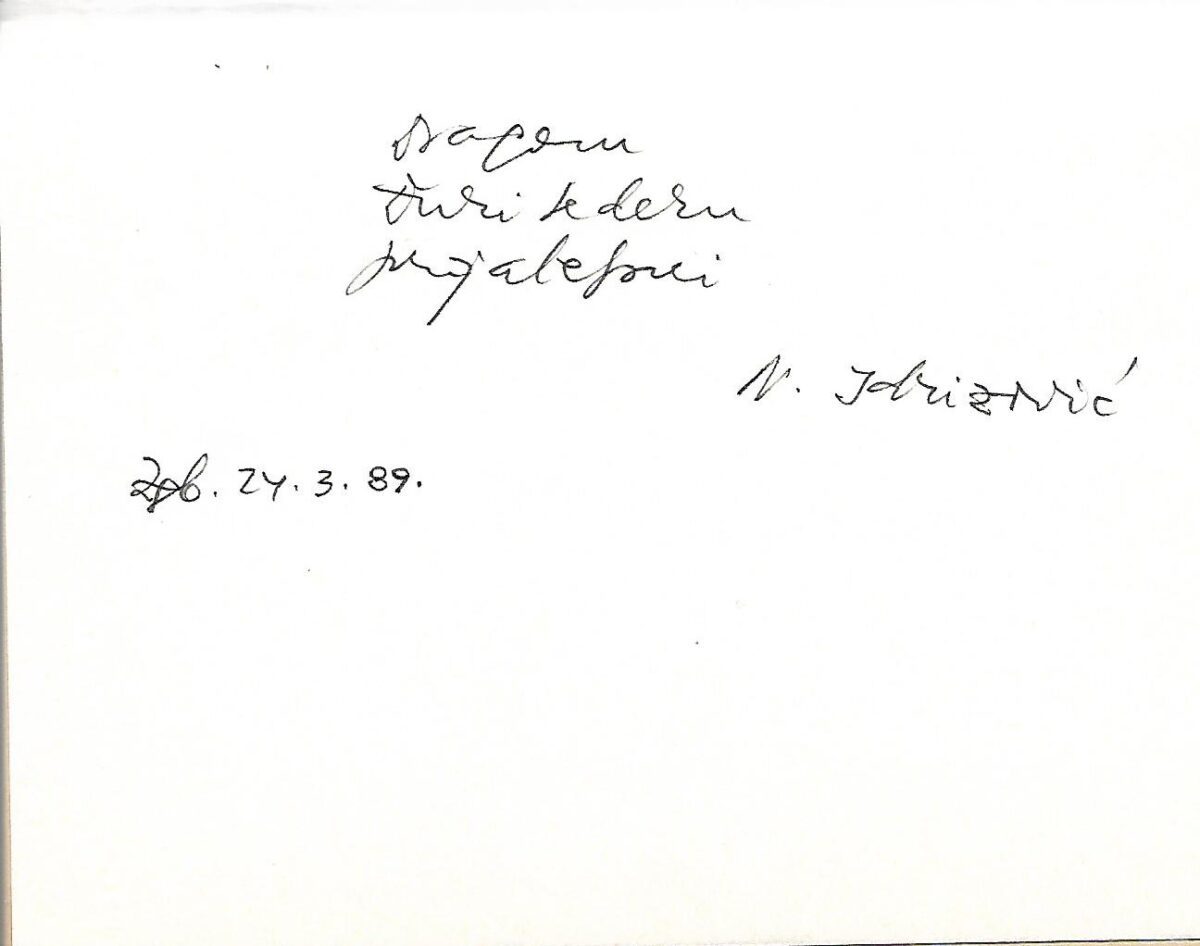 Dragom
Đuri Sederu
prijateljski
N. Idrizović
Zgb. 24. 3. 89.